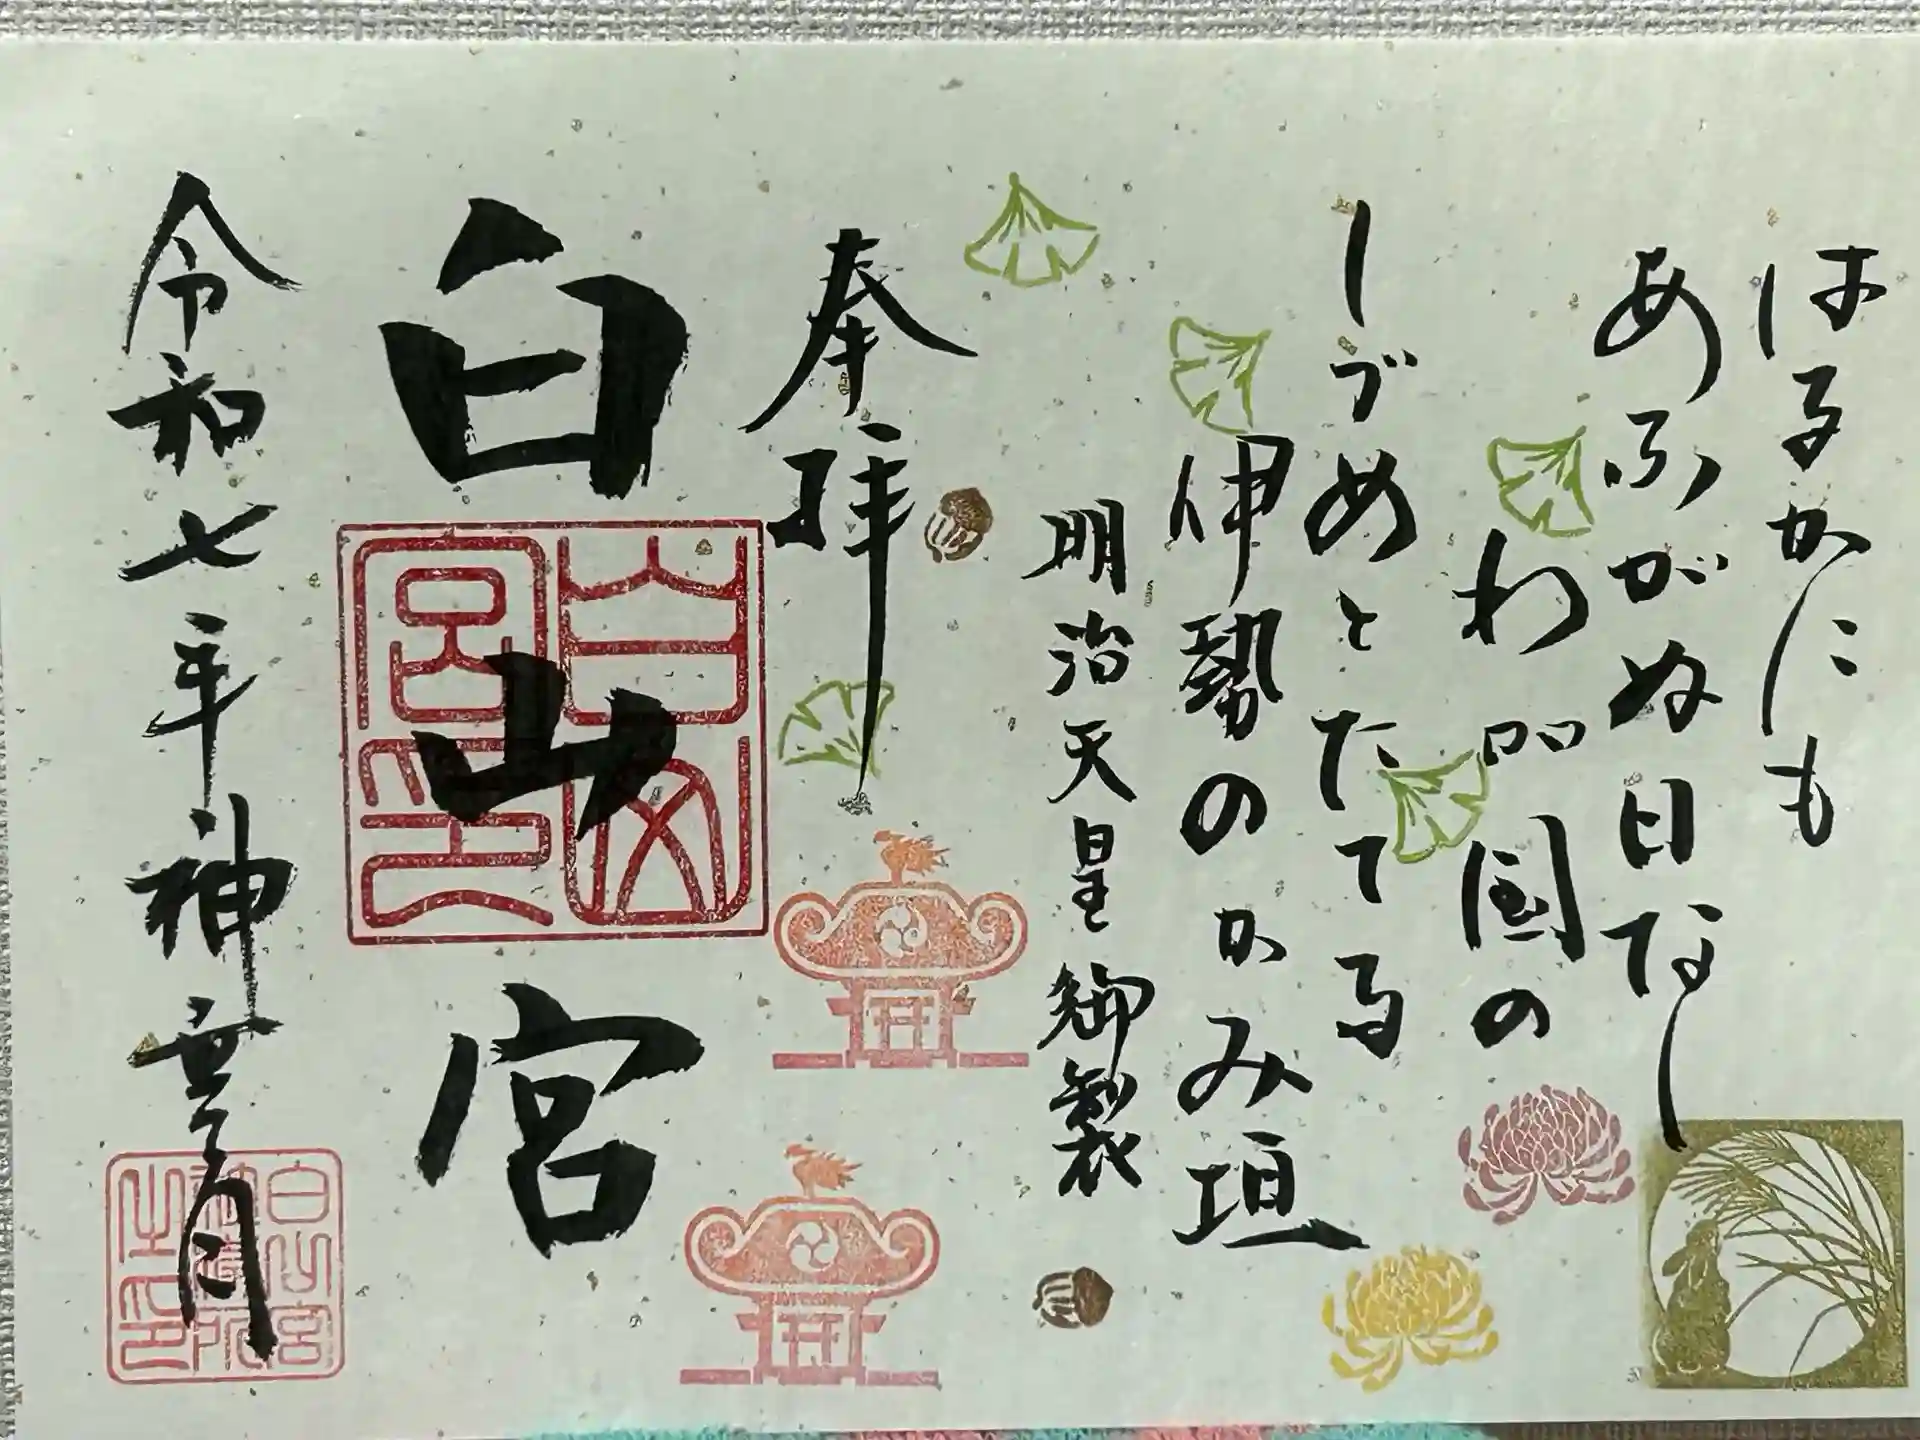 はるかにも
あふがぬ日なし
わが国の
しづめとたてる
伊勢のかみ垣
明治天皇御製
奉拝
白山宮
白山宮印
令和七年神無月
白山宮
社務所
之印